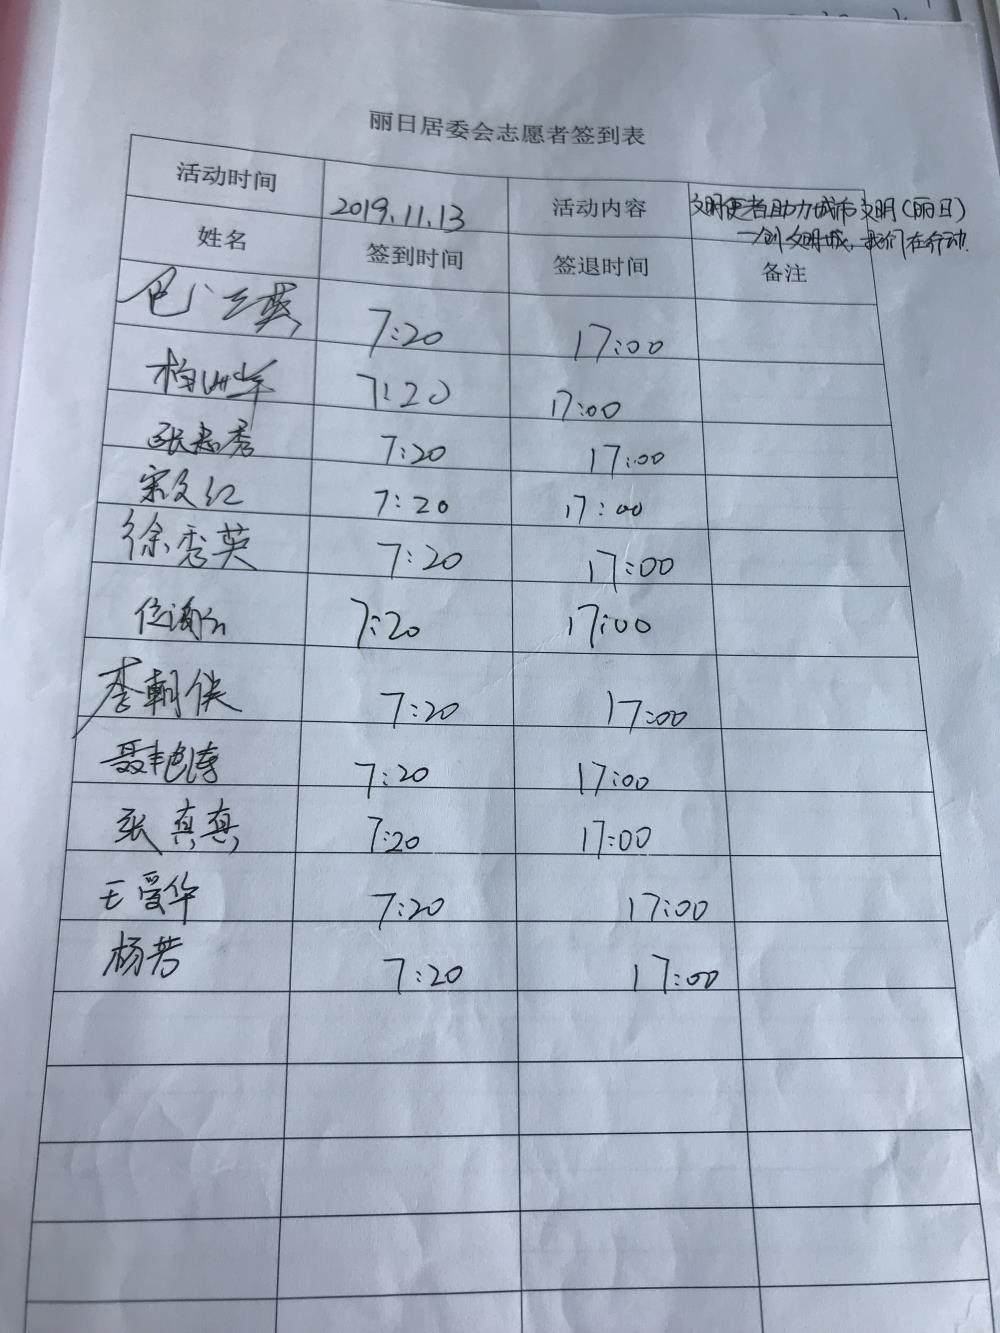 丽日居委会志愿者签到表
活动时间 2019.11.13 活动内容 文明使者助力城市文明(丽日)
一创文明城,我们在行动.
姓名 签到时间 签退时间 备注
7:20 17:00
7:20 17:00
张志秀 7:20 17:00
宋文红 7:20 17:00
徐秀英 7:20 17:00
7:20 17:00
李朝侠 7:20 17:00
聂艳涛 7:20 17:00
张真真 7:20 17:00
王爱华 7:20 17:00
杨芳 7:20 17:00